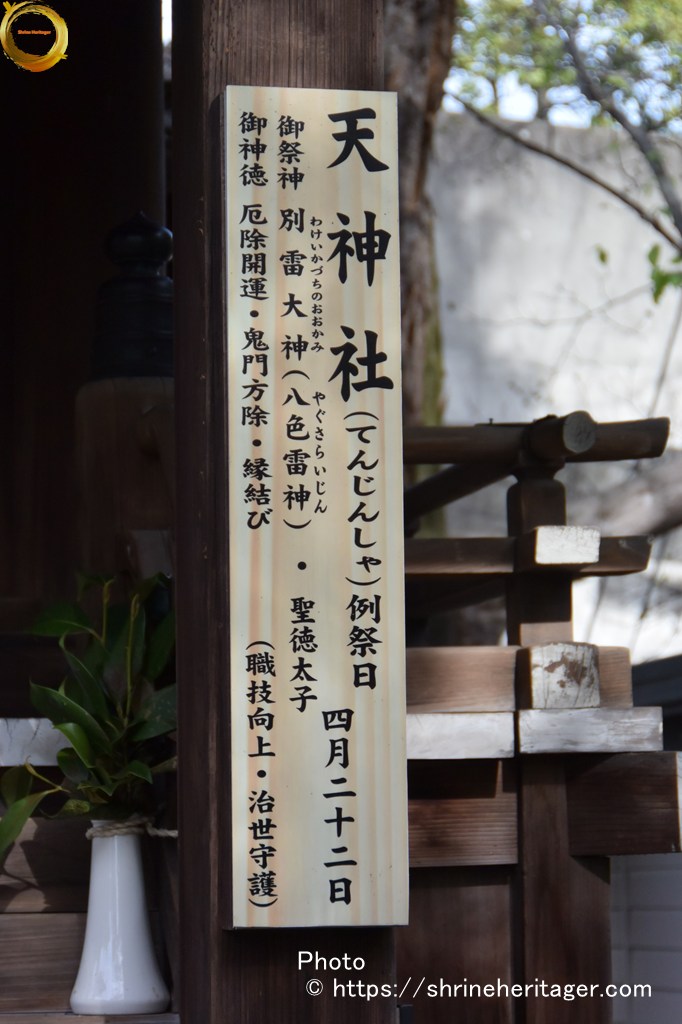 Shrine Heritager
天神社(てんじんしゃ)例祭日 四月二十二日
御祭神 別雷大神(八色雷神)・聖徳太子
わけいかづちのおおかみ
やぐさらいじん
御神徳 厄除開運・鬼門方除・縁結び (職技向上・治世守護)
Photo
© https://shrineheritager.com